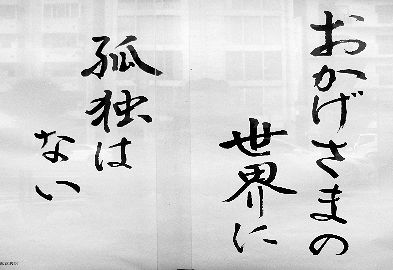 おかげさまの
世界に
孤独は
ない